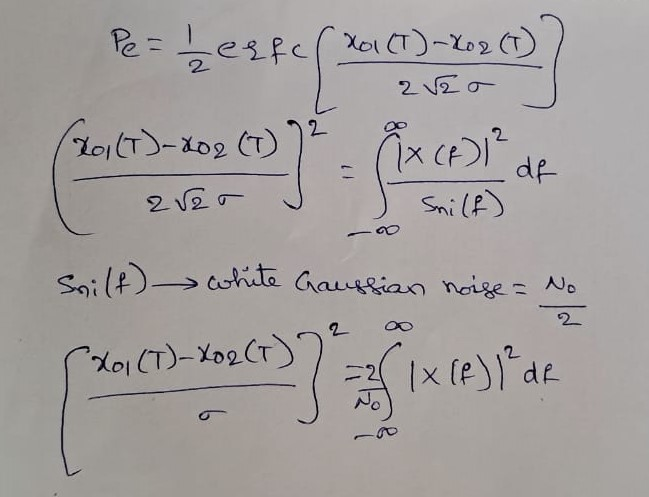 Pe = 1/2 erfc [ (x01(T) - x02(T)) / (2√2 σ) ]
( (x01(T) - x02(T)) / (2√2 σ) ]² = ∫_{-∞}^{∞} |X(f)|² / Sni(f) df
Sni(f) → white Gaussian noise = N0/2
[ (x01(T) - x02(T)) / σ ]² = 2/N0 ∫_{-∞}^{∞} |X(f)|² df